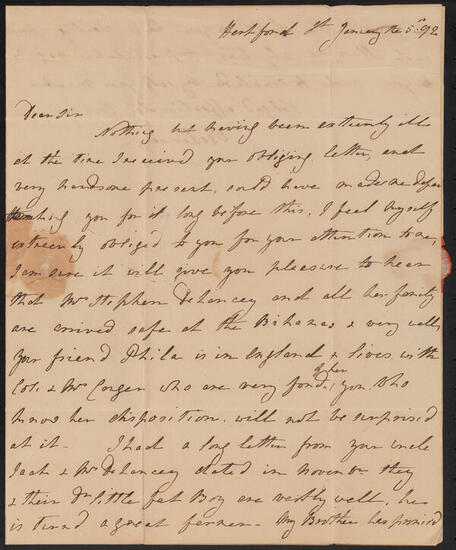 Hertford St January the 5th 92
Dear Sir
Nothing but having been extreemly ill
at the time I received your obliging letter, and
very handsome present, could have made me defer
thanking you for it long before this, I feel myself
extreemly obliged to you for your attention to me,
I am sure it will give you pleasure to hear
that Mrs Stephen Delancey and all her family
are arrived safe at the Bahamas & very well,
your friend Phila is in England & lives with
Col: & Mrs who are very fond of her, you who
know her disposition, will not be surprised
at it - I had a long letter from your uncle
Jack & Mrs Delancey dated in Novembr they
& their Dr little fat Boy are well, he
is turnd a great farmer - My Brother has promised